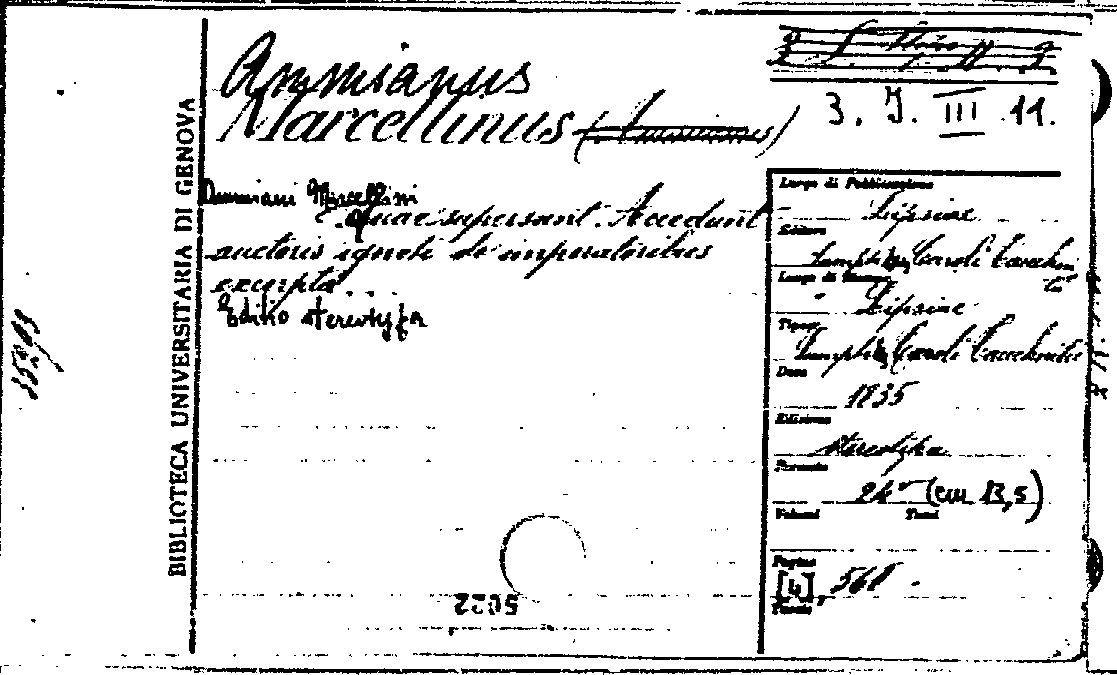 Ammianus
Marcellinus (Ammianus)
3. J. III 11.
BIBLIOTECA UNIVERSITARIA DI GENOVA
Ammiani Marcellini
quae supersunt. Accedunt
auctoris ignoti de imperatoribus
excerpta...
Editio stereotypa
Luogo di Pubblicazione
Lipsiae
Editore
Sumptib. Caroli Tauchnitii
Luogo di Stampa
Lipsiae
Tipogr.
Sumptib. Caroli Tauchnitii
Data
1835
Edizione
stereotipa
Formato
24° (cm 13,5)
Volumi Tomi
Pagine
[4], 568.
Tavole